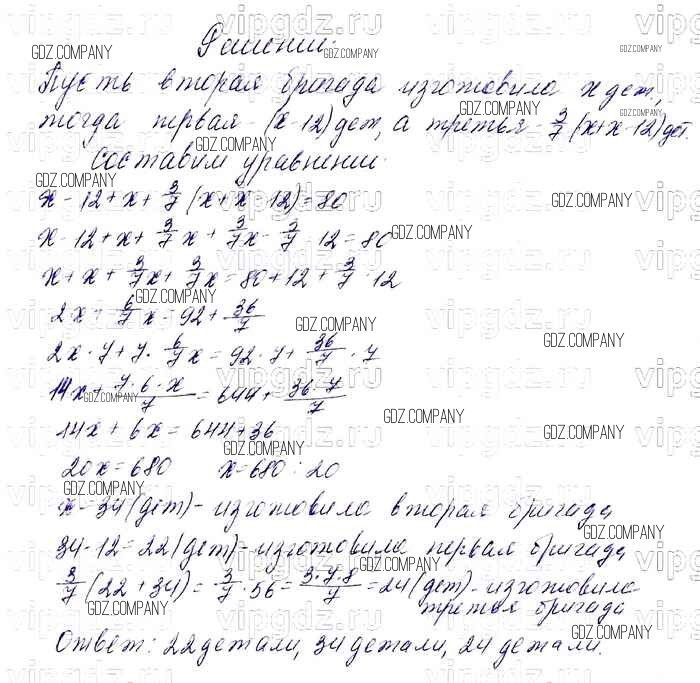 Решение:
Пусть вторая бригада изготовила x дет,
тогда первая - (x-12) дет, а третья - 3/7 (x+x-12) дет.
Составим уравнение:
x - 12 + x + 3/7 (x+x-12) = 80
x - 12 + x + 3/7 x + 3/7 x - 3/7 · 12 = 80
x + x + 3/7 x + 3/7 x = 80 + 12 + 3/7 · 12
2x + 6/7 x = 92 + 36/7
2x · 7 + 7 · 6/7 x = 92 · 7 + 36/7 · 7
14x + 7·6·x/7 = 644 + 36·7/7
14x + 6x = 644 + 36
20x = 680 x = 680 : 20
x = 34 (дет) - изготовила вторая бригада
34 - 12 = 22 (дет) - изготовила первая бригада
3/7 (22 + 34) = 3/7 · 56 = 3·7·8/7 = 24 (дет) - изготовила
третья бригада
Ответ: 22 детали, 34 детали, 24 детали.
GDZ.COMPANY
vipgdz.ru